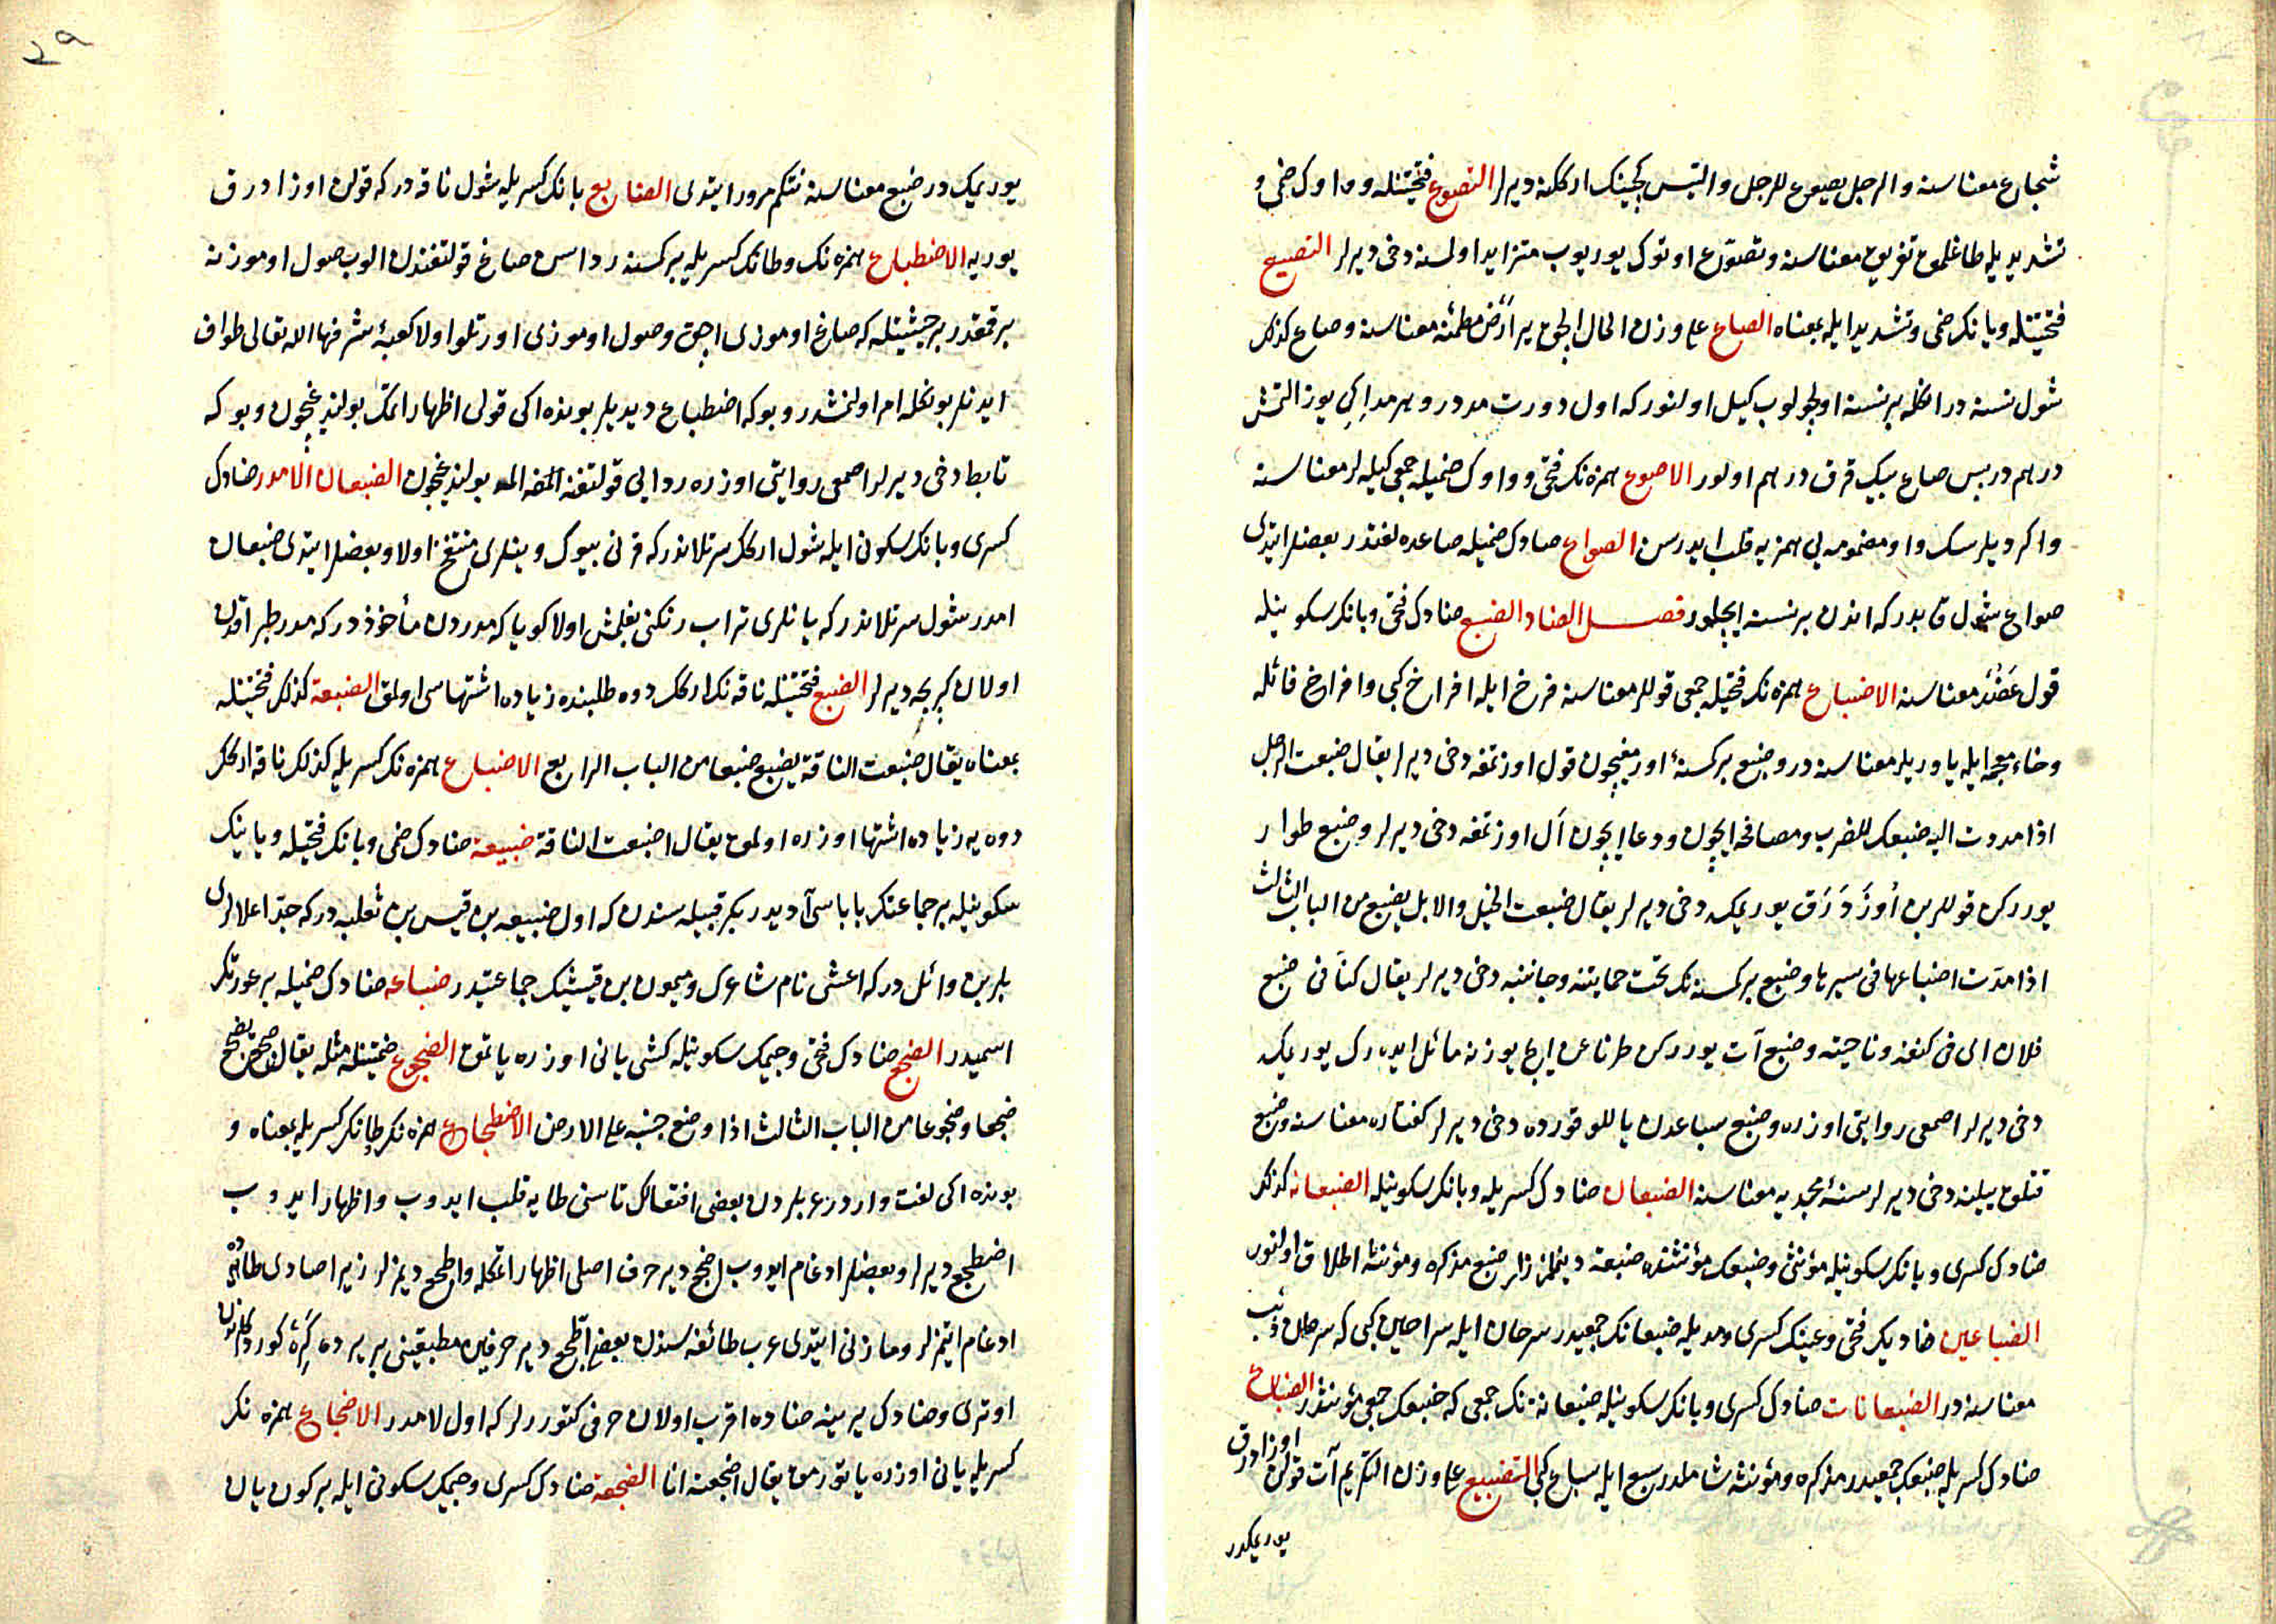 شجاع معناسنه والرجل يصوع للرجل والتيس كچينك اركنه ديرلر التصوع فتحتينله وواوك ضمى و
تشديديله طاغلمق تفريق معناسنه وتصوّع اوتوك يوريوب متزايد اولسنه دخى ديرلر التصيع
فتحتينله ويانك ضمى وتشديد ايله بمعناه الصاع على وزن الحال الچق ير ارض مطمئنه معناسنه وصاع كذلك
شول نسنه در انكله بر نسنه اولچولوب كيل اولنور كه اول دورت مددر وهر مد ايكى يوز التمش
درهمدر پس صاع بيك قرق درهم اولور الاصوع همزه نك فتحى وواوك ضميله جمعى كيله لر معناسنه
واكر ديلرسك واو مضمومه يى همزيه قلب ايدرسن الصواع صادك ضميله صاعده لغتدر بعضلر ايتدى
صواع شول قابدر كه اندن بر نسنه ايچلور فصل الضاد الضبع ضادك فتحى وبانك سكونيله
قول عَضُد معناسنه الاضباع همزه نك فتحيله جمعى قوللر معناسنه فرخ ايله افراخ كبى وافراخ فائله
وخاء معجمه ايله ياوريلر معناسنه در وضبع بر كسنه اورمغيچون قول اوزتمغه دخى ديرلر يقال ضبعت الرجل
اذا مددت اليه ضبعك للضرب ومصافحه ايچون ودعا ايچون ال اوزتمغه دخى ديرلر وضبع طوار
يوررکن قوللرين اُوزَدَرَق يوريمكه دخى ديرلر يقال ضبعت الخيل والابل يضبع من الباب الثالث
اذا مدّت اضباعها فى سيرها وضبع بر كسنه نك تحت حمايتنه وجانبنه دخى ديرلر يقال كنّا فى ضبع
فلان اى فى كنفه وناحيته وضبع آت يوررکن طرناغن ايچ يوزنه مائل ايدرك يوريمكه
دخى ديرلر اصمعى روايتى اوزره وضبع سباعدن ياللو قورده دخى ديرلر كفتاره معناسنه وضبع
قتلق ييلنه دخى ديرلر سنهٔ مجدبه معناسنه الضبعان ضادك كسريله وبانك سكونيله الضبعانه كذلك
ضادك كسرى وبانك سكونيله مؤنثى وضبعك مؤنثنده ضبعة دينلمز زيرا ضبع مذكره ومؤنثه اطلاق اولنور
الضباعين ضاديك فتحى وعينك كسرى ومديله ضبعانك جمعيدر سرحان ايله سراحين كبى كه سرحان ذئب
معناسنه در الضبعانات ضادك كسرى وبانك سكونيله ضبعانه نك جمعى كه ضبعك جمعى مؤنثدر الضباع
ضادك كسريله ضبعك جمعيدر مذكره ومؤنثه شاملدر سبع ايله سباع كبى التضبيع على وزن التكريم آت قولن اوزادرق
يوريمكدر
يوريمكدر ضبع معناسنه نتكم مرور ايتدى الضابع بانك كسريله شول ناقه در كه قولن اوزادرق
يوريه الاضطباع همزه نك وطانك كسريله بر كسنه رداسن صاغ قولتغندن الوب صول اوموزنه
برقمقدر بر حيثيتله كه صاغ اوموزى اچق وصول اوموزى اورتلو اولا كعبهٔ شرفها الله تعالى طواف
ايدنلر بونكله امر اولنمشدر وبوكه اضطباع ديديلر بونده ايكى قولى اظهار اتمك بولنديغيچون وبوكه
تابط دخى ديرلر اصمعى روايتى اوزره ردايى قولتغنه بولنديغيچون الضبعان الامدر ضادك
كسرى وبانك سكونى ايله شول اركك سرتلاندر كه قرنى بيوك ويانلرى منتفخ اولا وبعضلر ايتدى ضبعان
امدر شول سرتلاندر كه يانلرى تراب رنكنى بغلمش اولا كويا كه مدردن مأخوذدر كه مدر طپراقدن
اولان كرپيجه ديرلر الضبع فتحتينله ناقه نك اركك دوه طلبنده زياده اشتهاسى اولمق الضبعة كذلك فتحتينله
بمعناه يقال ضبعت الناقة يضبع ضبعا من الباب الرابع الاضباع همزه نك كسريله كذلك ناقه اركك
دوه يه زياده اشتها اوزره اولمق يقال اضبعت الناقة ضبيعة ضادك ضمى وبانك فتحيله ويانك
سكونيله بر جماعتك باباسى آديدر بكر قبيله سندن كه اول ضبيعه بن قيس بن ثعلبه در كه جدّ اعلالرى
بكر بن وائل در كه اعشى نام شاعرك وميمون بن قيسك جماعتيدر ضباعه ضادك ضميله بر عورتك
اسميدر الضجع ضادك فتحى وجيمك سكونيله كشى يانى اوزره ياتمق الضجوع ضمتينله مثله يقال ضجع يضجع
ضجعا وضجوعا من الباب الثالث اذا وضع جنبه على الارض الاضطجاع همزه نك طانك كسريله بمعناه و
بونده ايكى لغت واردر عربلردن بعضى افتعالك تاسنى طايه قلب ايدوب واظهار ايدوب
اضطجع ديرلر وبعضلر ادغام ايدوب اضجع دير حرف اصلى اظهار اتمكله واطجع ديمزلر زيرا ضادى طايه
ادغام ايتمزلر ومازنى ايتدى عرب طائفه سندن بعضى الطجع دير حرفين مطبقينى بر يرده كره كوردكلرندن
اوترى وضادك يرينه ضاده اقرب اولان حرفى كتوررلر كه اول لامدر الاضجاع همزه نك
كسريله يانى اوزره ياتورمق يقال اضجعته انا الضجعة ضادك كسرى وجيمك سكونى ايله بر كون يان